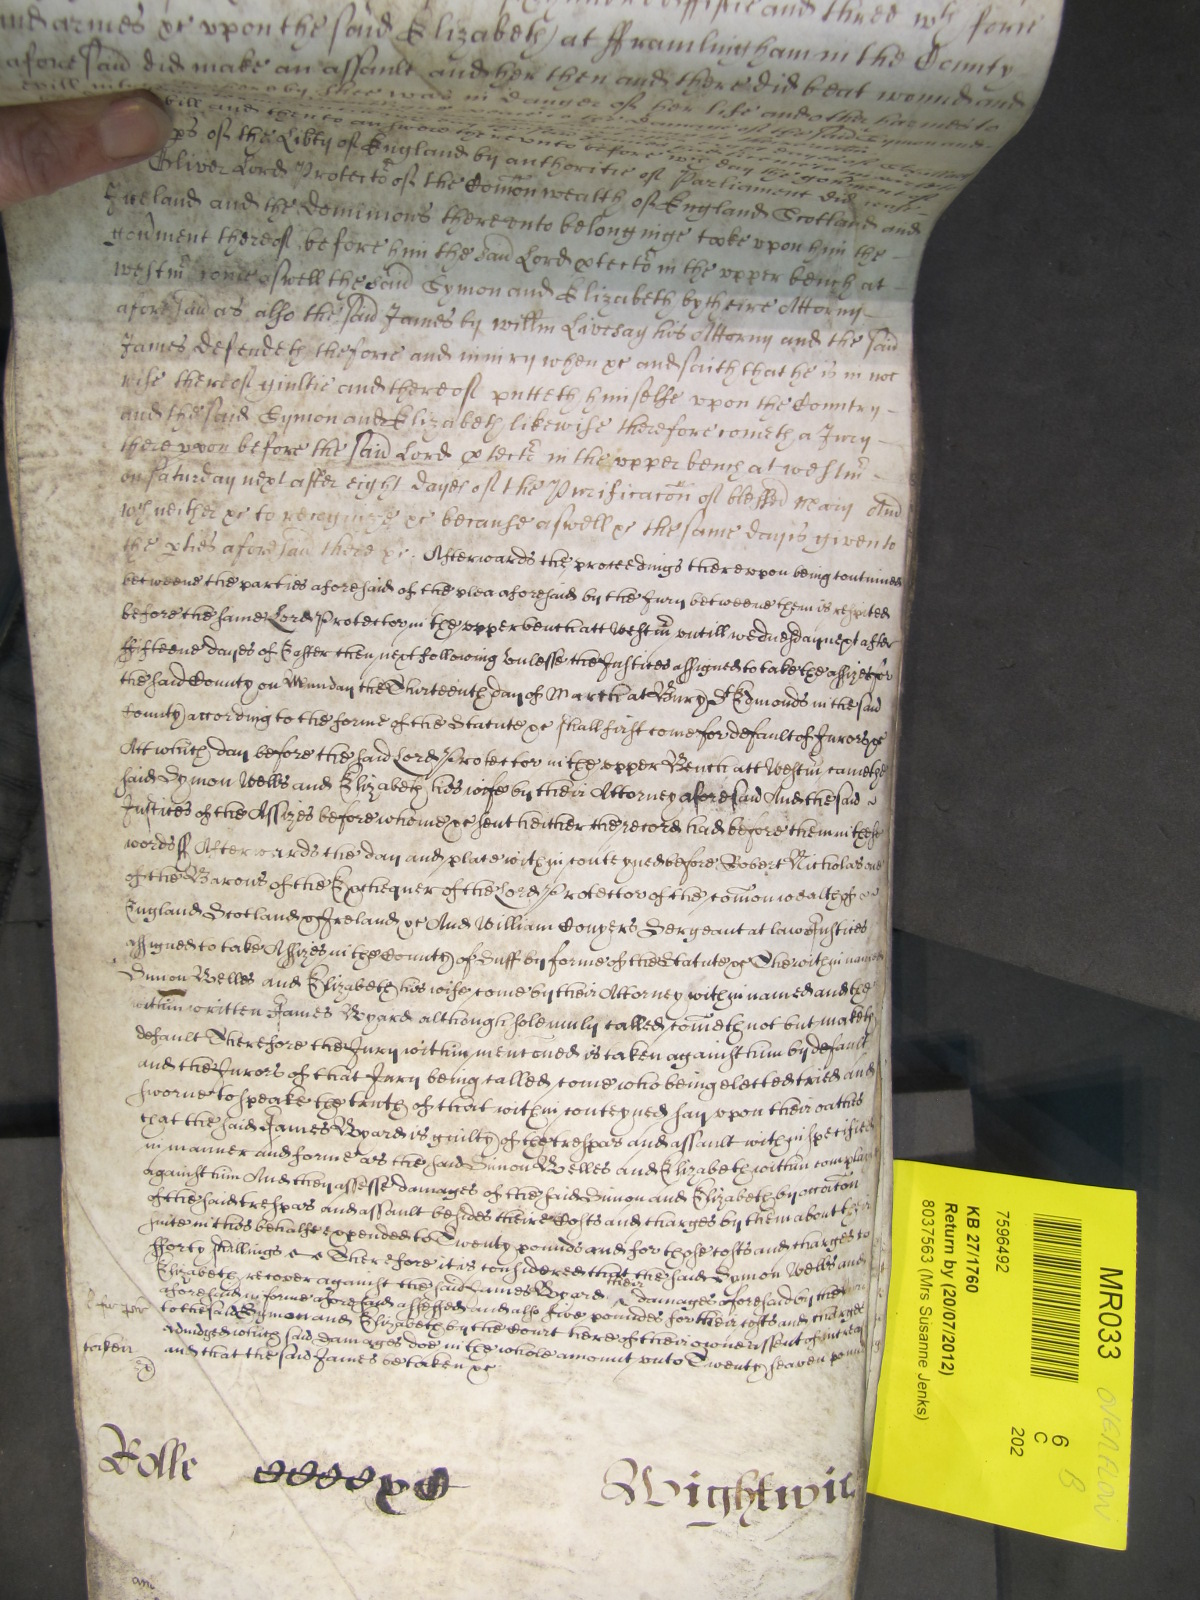 and three wth force
and armes &c upon the said Elizabeth at Fframlingham in the County
aforesaid did make an assault and her then and there did beat wound and
evill intreat whereby shee was in danger of her life and other harmes to
of the Libty of England by authoritie of Parliament did
Oliver Lord Protector of the Comon wealth of England Scotland and
Ireland and the dominions thereunto belonginge tooke upon him the
govment thereof before him the said Lord ptector in the upper bench at
westmr come aswell the said Symon and Elizabeth by theire Attorny
aforesaid as also the said James by Willm Livesay his Attorny and the said
James defendeth the force and iniury when &c and saith that he is in noe
wise thereof guiltie and thereof putteth himselfe upon the Country
and the said Symon and Elizabeth likewise therefore cometh a Jury
thereupon before the said Lord ptector in the upper bench at westmr
on Saturday next after eight dayes of the Purificacon of blessed Mary And
wch neither &c to recognize &c because aswell &c the same day is given to
the pties aforesaid there &c. Afterwards the proceedings thereupon being continued
betweene the parties aforesaid of the plea aforesaid by the Jury betweene them is respited
before the same Lord Protector in the upper bench att Westmr untill wednesday next after
ffifteene dayes of Easter then next following unlesse the Justices assigned to take the assizes for
the said County on Munday the Thirteenth day of March at Bury St Edmonds in the said
County according to the forme of the Statute &c shall first come for default of Jurors &c
Att which day before the said Lord Protector in the upper Bench att Westmr came the
said Symon Wells and Elizabeth his wife by their Attorney aforesaid And the said
Justices of the Assizes before whome &c sent heither the record had before them in these
words ss Afterwards the day and place within conteyned before Robert Nicholas one
of the Barons of the Exchequer of the Lord Protector of the comonwealth of
England Scotland & Ireland &c And William Conyers Sergeant at law Justices
assigned to take Assizes in the County of Suff by forme of the Statute &c The within named
Simon Welles and Elizabeth his wife come by their Attorney within named and the
within written James Byard although solemnly called cometh not but maketh
default Therefore the Jury within mentoned is taken against him by default
and the Jurors of that Jury being called come who being elected tried and
sworne to speake the truth of that within conteyned say upon their oathes
that the said James Byard is guilty of the trespas and assault within specified
in manner and forme as the said Simon Welles and Elizabeth within complaine
against him And they assesse damages of the said Simon and Elizabeth by occacon
of the said trespas and assault besides theire Costs and charges by them about their
suite in this behalfe expended to Twenty pounds and for those costs and charges to
fforty shillings Therefore it is considered that the said Symon Wells and
Elizabeth recover against the said James Byard their damages aforesaid by the
aforesaid in forme aforesaid assessed and also five poundes for their costs and charges
to the said Symon and Elizabeth by the Court here of their owne assent of increase
adiudged which said damages doe in the whole amount unto Twenty seaven pounds
and that the said James be taken &c
taken
Rolle
Wightwic
MR033
6
C
202
7596492
KB 27/1760
Return by (20/07/2012)
8037563 (Mrs Susanne Jenks)